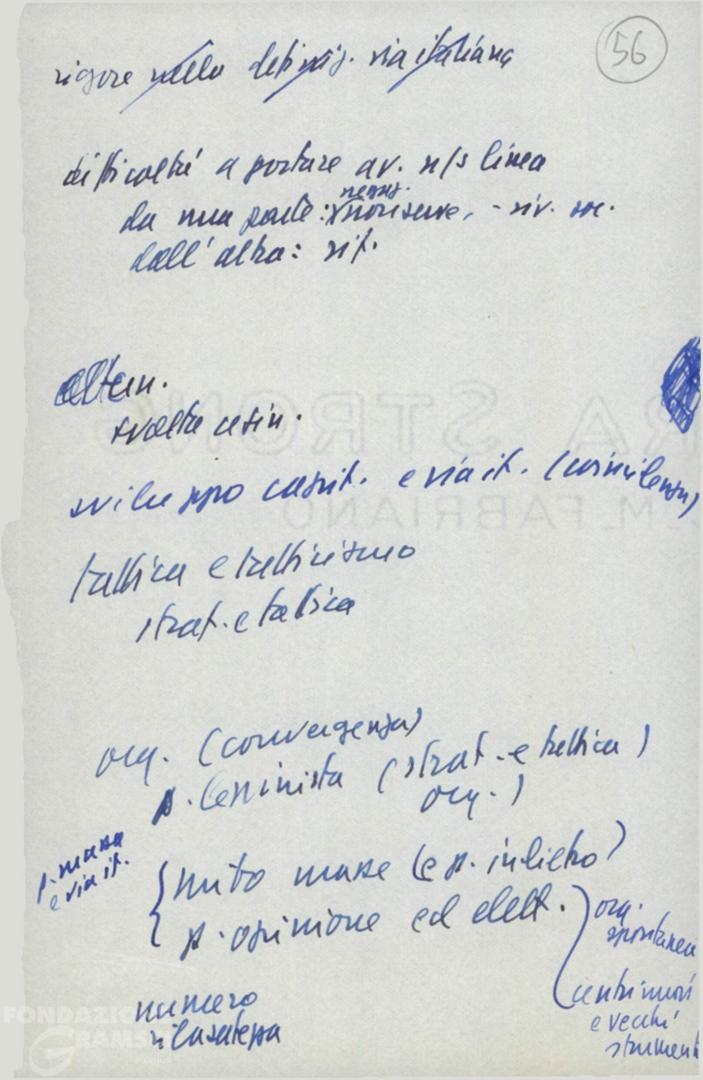 56
rigore nella definiz. via italiana
difficoltà a portare av. n/s linea
da una parte: riserve, - riv. soc.
negaz.
dall'altra: rif.
altern.
svolta a sin.
sviluppo capit. e via it. (coincidenza)
tattica e tatticismo
strat. e tattica
org. (convergenza)
p. leninista (strat. e tattica)
org.)
p. massa
e via it.
mito masse (e p. indietro)
p. opinione ed elett.
org.
spontanea
centri nuovi
e vecchi
strumenti
numero
rilassatezza
RA STRONG
C.M. FABRIANO
FONDAZIONE
GRAMSCI